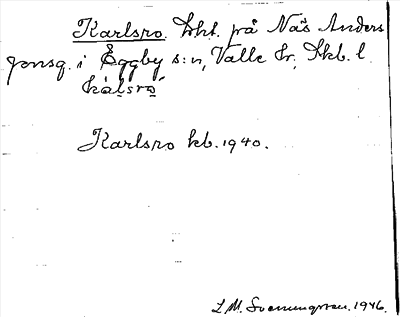 Karlsro. Lht. på Näs Anders
Jonsg. i Eggby s:n, Valle hr, Skb. l.
kálsro
Karlsro kb. 1940.
L. M. Svenungsson. 1946.